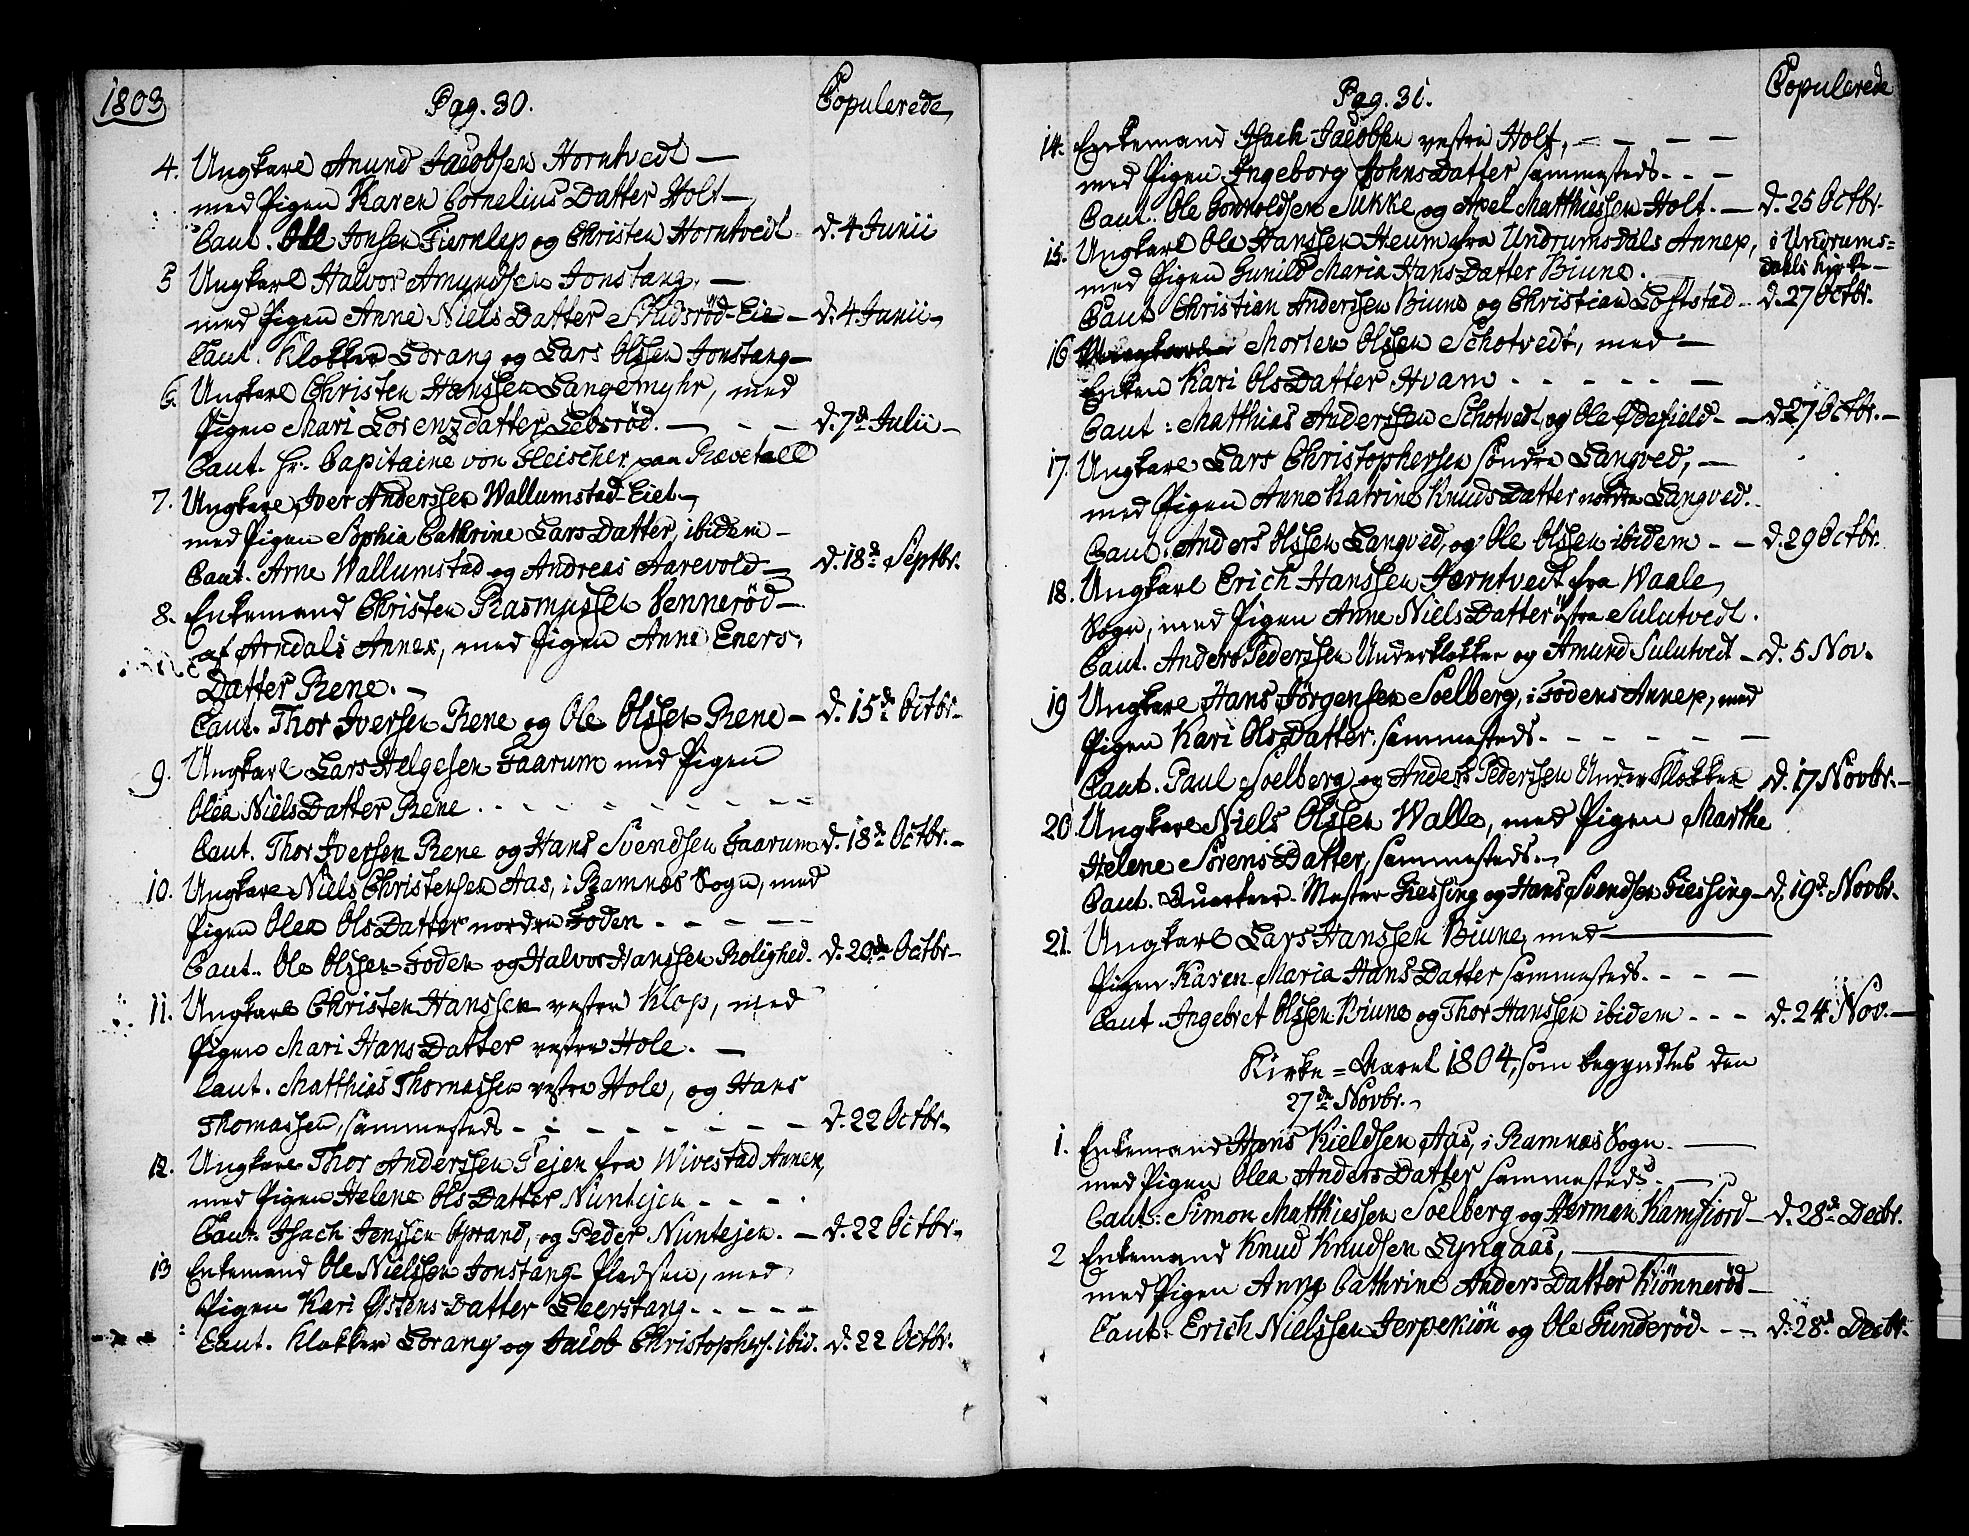 1803
Pag. 30.
Copulerede
4. Ungkarl Anund Jacobsen Horntvedt —
med Pigen Karen Cornelius Datter Holt —
Caut. Ole Jonsen Fiernlep og Christen Horntvedt — d. 4 Junii
5 Ungkarl Halvor Amundsen Jonstang. —
med Pigen Anne Niels Datter Sridsröd-Eie — d. 4 Junii —
Caut. Klokker Lorang og Lars Olssen Jonstang —
6. Ungkarl Christen Hanssen Langemyhr, med
Pigen Mari Lorenzdatter Lebsröd. — — — d. 7de Julii —
Caut. Hr. Capitaine von Fleischer paa Rævetall
7. Ungkarl Iver Anderssen Wallumstad-Eiet —
med Pigen Sophia Cathrine Lars Datter, ibidem —
Caut. Arne Wallumstad og Andreas Aarevold — d. 18de Septbr.
8. Enkemand Christen Rasmussen Vennerød —
af Arndals Annex, med Pigen Anne Eners
Datter Rene. —
Caut. Thor Iversen Rene og Ole Olssen Rene — d. 15de Octbr. —
9. Ungkarl Lars Helgesen Faarum med Pigen
Olea Niels Datter Rene . - - - - - - - -
Caut. Thor Iversen Rene og Hans Svendsen Faarum d. 18de Octbr. —
10. Ungkarl Niels Christensen Aas, i Ramnæs Sogn, med
Pigen Olea Ols Datter nordre Foden - - - - -
Caut. Ole Olssen Foden og Halvor Hanssen Rolighed. d. 20de Octbr —
11. Ungkarl Christen Hanssen vestre Klop, med
Pigen Mari Hans Datter vestre Hole. —
Caut. Matthias Thomassen vestre Hole, og Hans
Thomassen, sammesteds - - - - - - - - d. 22 Octbr.
12. Ungkarl Thor Anderssen Tejen fra Wivestad Annex,
med Pigen Helene Ols Datter Nuntejen - - - .
Caut. Isach Jenssen Oprand, og Peder Nuntejen. — d. 22 Octbr.
13 Enkemand Ole Nielssen Jonstang-Pladsen, med
Pigen Kari Østens Datter Leerstang - - - - -
Caut. Klokker Lorang og Jacob Christophers. ibid. d. 22 Octbr.
Pag. 31.
Copulerede
14. Enkemand Isach Jacobsen vestre Holt, — - - —
med Pigen Ingeborg Johns Datter sammesteds. - - -
Caut. Ole Gonnoldsen Sukke og Axel Matthiessen Holt. — d. 25 Octbr.
15. Ungkarl Ole Hanssen Heum fra Undrumsdals Annex, i Undrums=
med Pigen Gunild Maria Hans Datter Biune. - dahls Kirke —
Caut Christian Anderssen Biune og Christian Loftstad — d. 27 Octbr.
16 Morten Olssen Schotvedt, med —
Enken Kari Ols Datter Hvam - - - - - - —
Caut: Matthias Anderssen Schotvedt, og Ole Ødefield — d 27 Octbr. —
17. Ungkarl Lars Christophersen søndre Langved, —
med Pigen Anne Katrine Knuds Datter Langved.
Caut. Anders Olssen Langved, og Ole Olssen ibidem - — d. 29 Octbr.
18. Ungkarl Erich Hanssen Jerntvedt fra Waale
Sogn, med Pigen Anne Niels Datter östre Sulutvedt.
Caut. Anders Pederssen Underklokker og Amund Sulutvedt — d. 5 Nov.
19 Ungkarl Hans Jörgensen Soelberg, i Fodens Annex, med
Pigen Kari Ols Datter sammesteds. - - - - - —
Caut. Paul Soelberg og Anders Pederssen Under Klokker d. 17 Novbr. —
20. Ungkarl Niels Olssen Walle, med Pigen Marthe
Helene Sörens Datter, sammesteds. —
Caut. Qvarteer-Mester Giessing og Hans Svendsen Giessing — d. 19de Novbr.
21. Ungkarl Lars Hanssen Biune, med —
Pigen Karen Maria Hans Datter sammesteds. - - —
Caut. Ingebret Olssen Biune og Thor Hanssen ibidem - - - d. 24 Nov. —
Kirke = Aaret 1804, som begyndtes den
27de Novbr.
1. Enkemand Hans Kieldsen Aas, i Ramnæs Sogn. —
med Pigen Olea Anders Datter sammesteds. —
Caut: Simon Matthiessen Soelberg og Herman Kamfiord — d. 28de Decbr.
2 Enkemand Knud Knudsen Lyngaas, —
med Pigen Anne Cathrine Anders Datter Kiönneröd —
Caut: Erich Nielssen Jerpekiön og Ole Gunderöd. - — d. 28de Decbr.